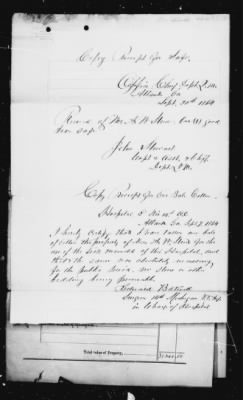 Copy Receipt for Safe.
Office Chief Dept. Q. M.
Atlanta Ga
Sept. 20th 1864
Recd of Mr. A. W. Stone One (1) good
Iron Safe
John Stewart
Capt & Asst. to Chief
Dept. Q.M.
Copy Receipt for One Bale Cotton
Hospital
Atlanta Ga. Sept 7 1864
I hereby certify that I have taken one bale
of cotton the property of Mr. A. W. Stone for the
use of the sick wounded of this Hospital, and
that the same was absolutely necessary
for the public service, no straw or other
bedding being procurable
Surgeon 10th Michigan
in charge of Hospital
Total value of Property,